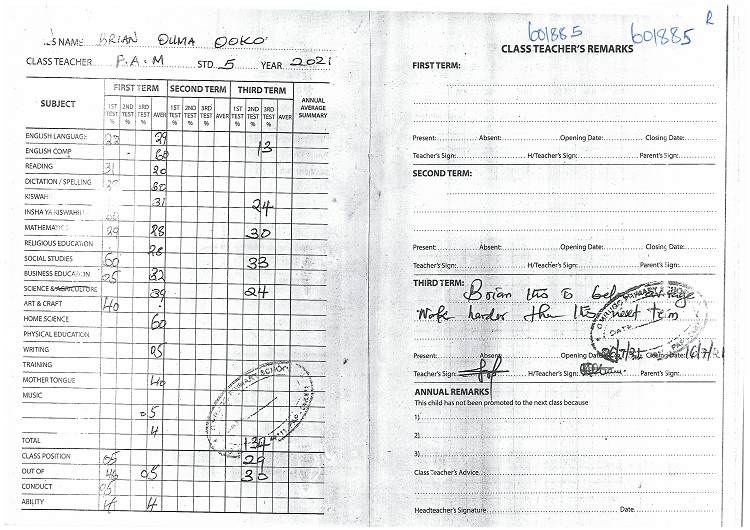 601885 601885 R
'S NAME BRIAN OUMA OOKO
CLASS TEACHER P.A.M STD 5 YEAR 2021
FIRST TERM SECOND TERM THIRD TERM
SUBJECT 1ST TEST % 2ND TEST % 3RD TEST % AVER 1ST TEST % 2ND TEST % 3RD TEST % AVER 1ST TEST % 2ND TEST % 3RD TEST % AVER ANNUAL AVERAGE SUMMARY
ENGLISH LANGUAGE 29
ENGLISH COMP 60 13
READING 31 20
DICTATION / SPELLING 60
KISWAHI 31 24
INSHA YA KISWAHILI
MATHEMATIC 29 28 30
RELIGIOUS EDUCATION 28
SOCIAL STUDIES 60 33
BUSINESS EDUCATION 05 82
SCIENCE & AGRICULTURE 39 24
ART & CRAFT 40
HOME SCIENCE 60
PHYSICAL EDUCATION
WRITING 05
TRAINING
MOTHER TONGUE 40
MUSIC
05
4
TOTAL 134
CLASS POSITION 05 29
OUT OF 46 05 30
CONDUCT
ABILITY 4
PRIMARY SCHOOL
CLASS TEACHER'S REMARKS
FIRST TERM:
Present: Absent: Opening Date: Closing Date:
Teacher's Sign: H/Teacher's Sign: Parent's Sign:
SECOND TERM:
Present: Absent: Opening Date: Closing Date:
Teacher's Sign: H/Teacher's Sign: Parent's Sign:
THIRD TERM: Brian its below average
Work harder then its next term
PRIMARY
DATE
Present: Absent: Opening Date: Closing Date: 16/7/21
Teacher's Sign: H/Teacher's Sign: Parent's Sign:
ANNUAL REMARKS
This child has not been promoted to the next class because
1)
2)
3)
Class Teacher's Advice
Headteacher's Signature Date